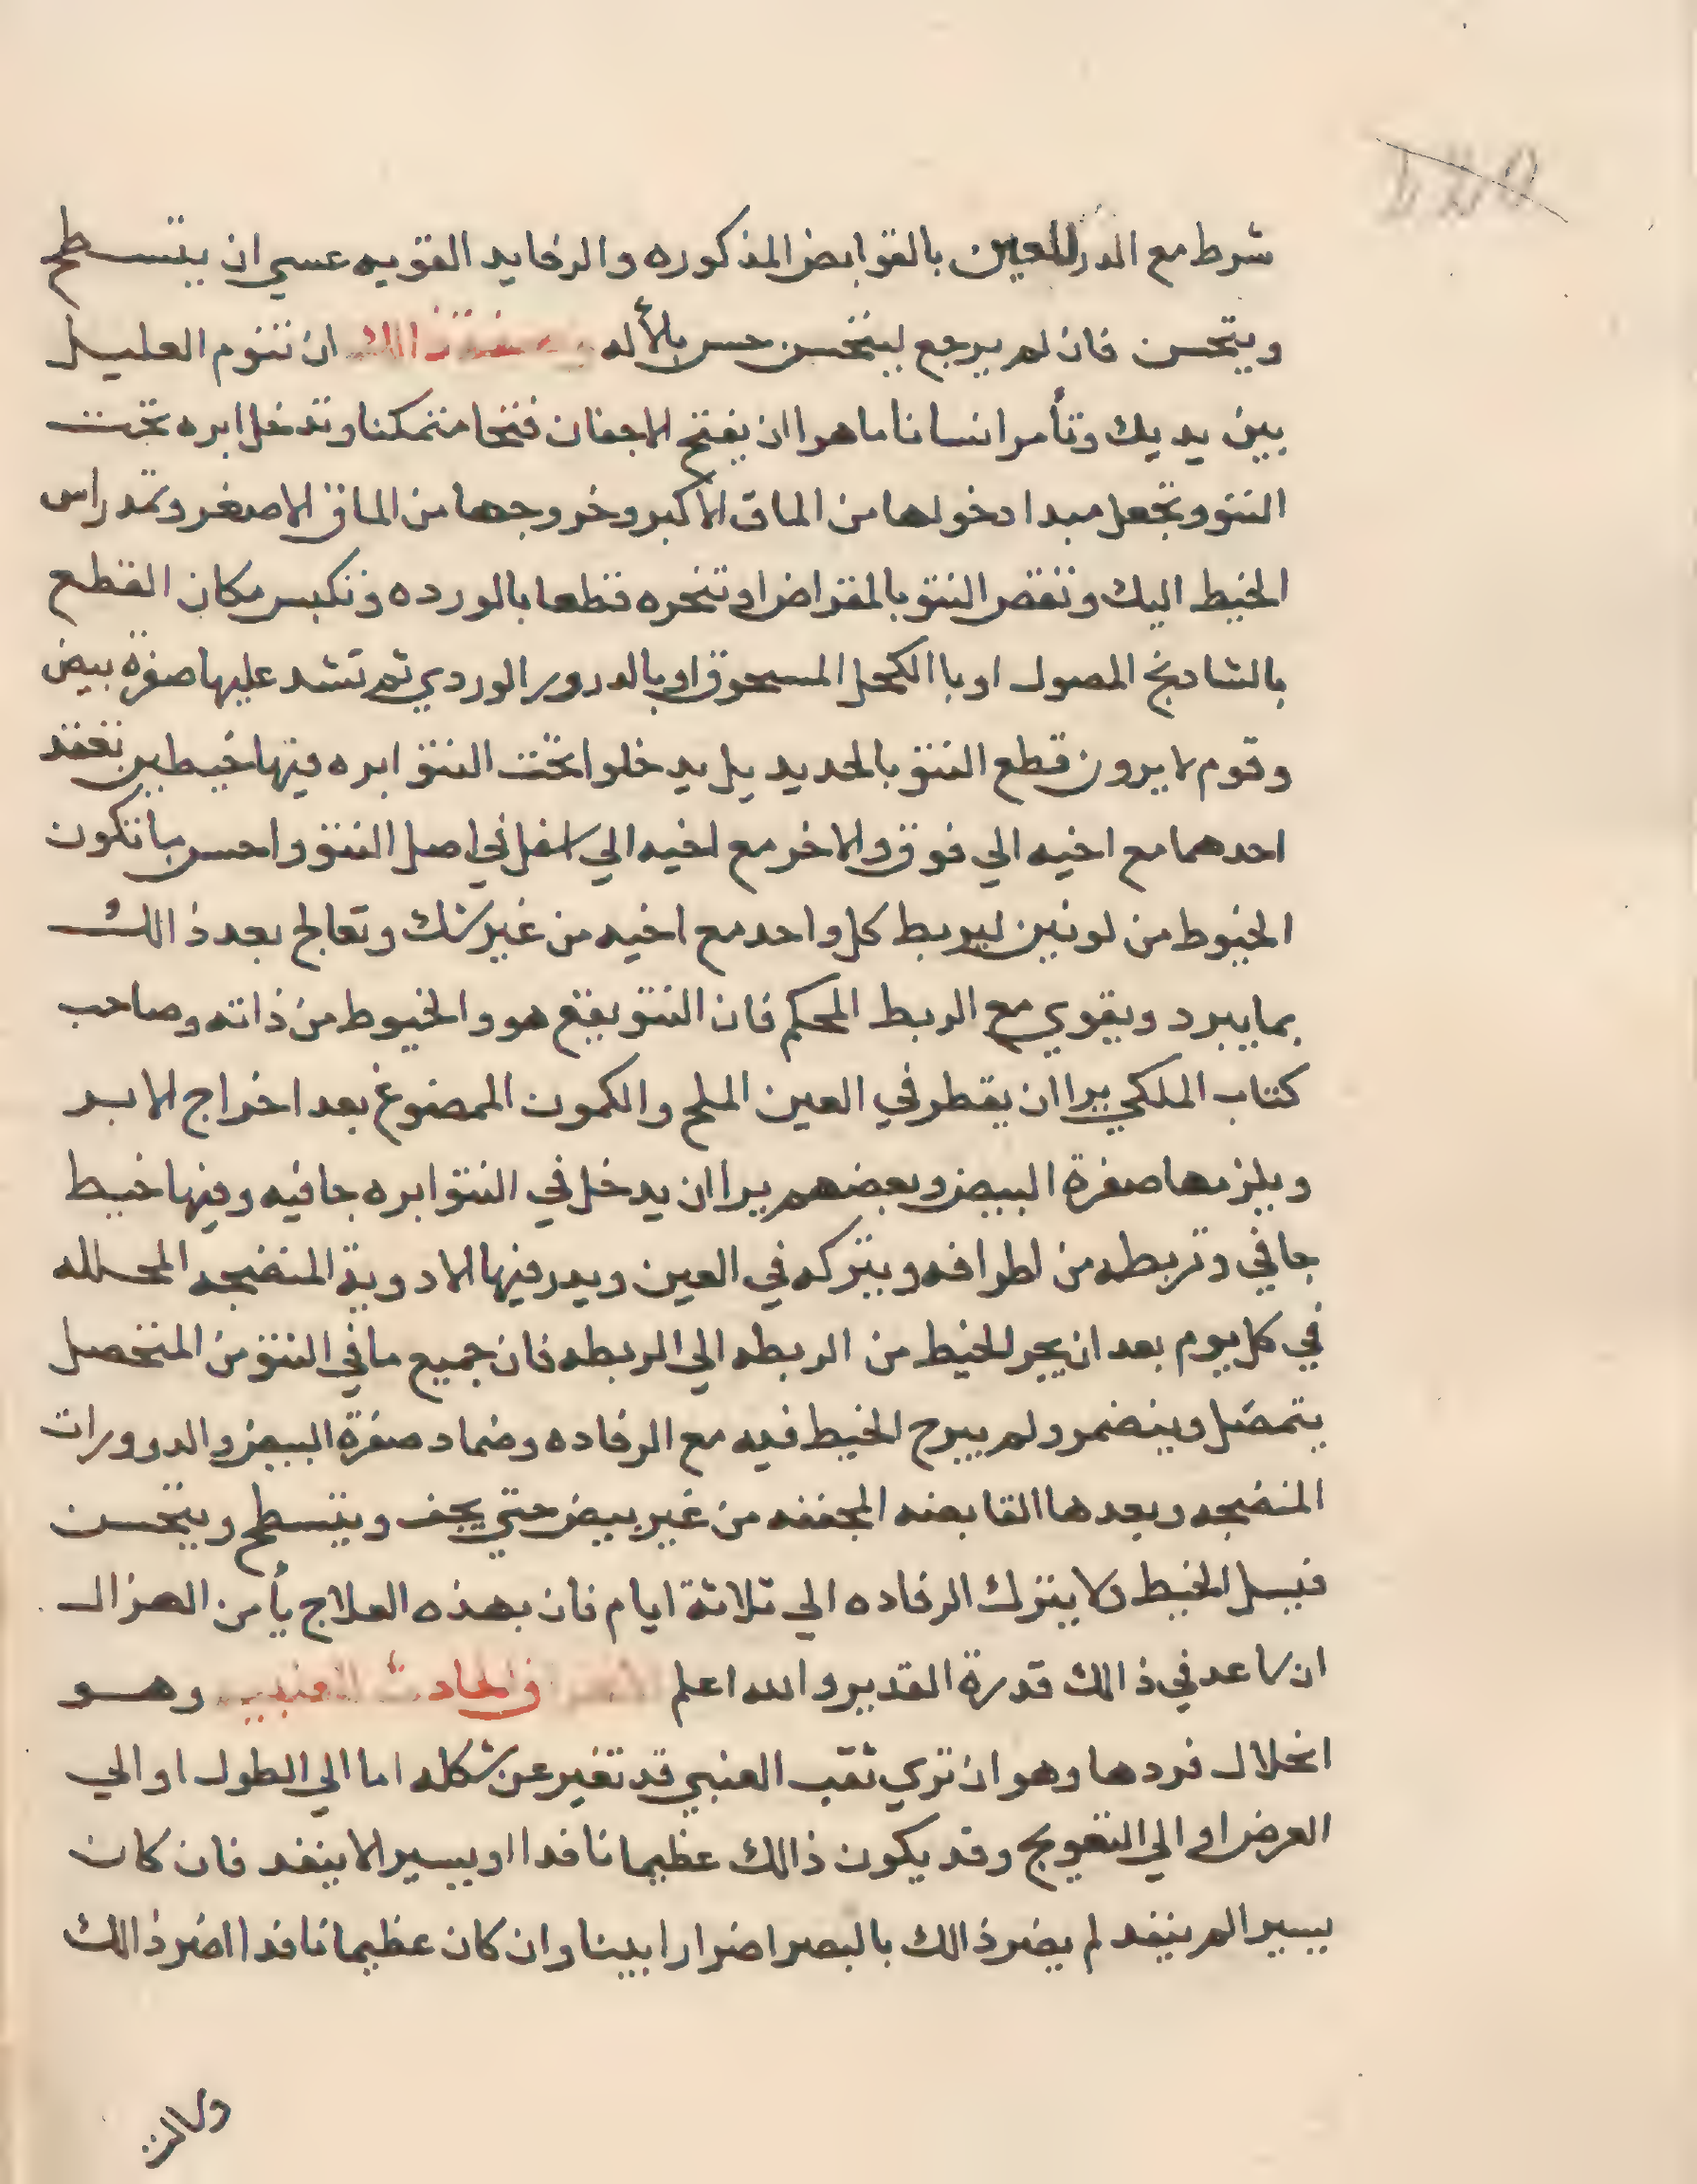 شرط مع الدر للعين بالقوابض المذكوره والرفايد القويه عسي ان يتسطح
ويتحسن فان لم يرجع ليتحسن حسن بالأله وصفة ذالك ان تنوم العليل
بين يديك وتأمر انسانا ماهرا ان يفتح الاجفان فتحا متمكنا وتدخل ابره تحت
النتو وتجعل مبدا دخولها من الماق الاكبر وخروجها من الماق الاصغر وتمد راس
الخيط اليك وتقص النتو بالمقراض او تنحره قطعا بالورده وتكبس مكان القطع
بالشادنج المصول او باالكحل المسحوق او بالدرور الوردي ثم تشد عليها صفرة بيض
وقوم لا يرون قطع النتو بالحديد بل يدخلوا تحت النتو ابره فيها خيطين تعقد
احدهما مع اخيه الي فوق والاخر مع اخيه الي اسفل في اصل النتو واحسن ما تكون
الخيوط من لونين ليربط كل واحد مع اخيه من غير شك وتعالج بعد ذالك
بما يبرد ويقوي مع الربط المحكم فان النتو يقع هو والخيوط من ذاته وصاحب
كتاب الملكي يرا ان يقطر في العين الملح والكمون الممضوغ بعد اخراج الابر
ويلزمها صفرة البيض وبعضهم يرا ان يدخل في النتو ابره جافيه وفيها خيط
جافي وتربطه من اطرافه ويتركه في العين ويدر فيها الادوية المنضجه المحلله
في كل يوم بعد ان يجر الخيط من الربطه الي الربطه فان جميع ما في النتو من المتحصل
يتمصل وينضمر ولم يبرح الخيط فيه مع الرفاده وضماد صفرة البيض والدرورات
المنضجه وبعدها القابضه المجففه من غير بيض حتي يجف ويتسطح ويتحسن
فيسل الخيط ولا يترك الرفاده الي ثلاثة ايام فان بهذه العلاج يأمن الهزال
ان ساعد في ذالك قدرة القدير والله اعلم في الحادث للعنبيه وهو
انحلال فردها وهو ان تري ثقب العنبي قد تغير عن شكله اما الي الطول او الي
العرض او الي التعويج وقد يكون ذالك عظيما نافدا او يسيرا لا ينفد فان كان
يسيرا لم ينفد لم يضر ذالك بالبصر اضرارا بينا وان كان عظيما نافدا اضر ذالك